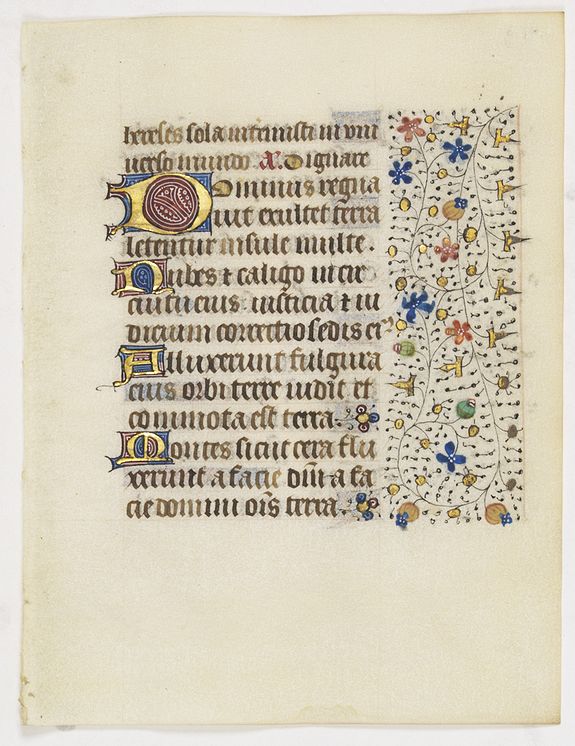 hereses sola interemisti in uni
uerso mundo. A. Dignare
Dominus regna
uit exultet terra
letentur insule multe.
Nubes ⁊ caligo in cir
cuitu eius iusticia ⁊ iu
dicium correctio sedis eiꝰ
Alluxerunt fulgura
eius orbi terre uidit et
commota est terra.
Montes sicut cera flu
xerunt a facie dn̄i a fa
cie domini oīs terra.